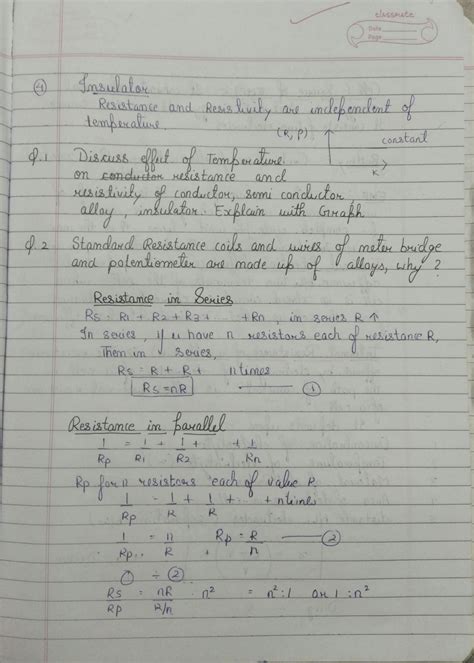 classmate
Date
Page
④ Insulator
Resistance and Resistivity are independent of
temperature.
(R, ρ)
constant
K
Q.1 Discuss effect of Temperature
on conductor resistance and
resistivity of conductor, semi conductor
alloy, insulator. Explain with Graph
Q.2 Standard Resistance coils and wires of meter bridge
and potentiometer are made up of alloys, why?
Resistance in Series
Rs = R1 + R2 + R3 + +Rn, in series R ↑
In series, if u have n resistors each of resistance R,
Then in series,
Rs = R + R + n times
Rs = nR ①
Resistance in parallel
1/Rp = 1/R1 + 1/R2 + + 1/Rn
Rp for n resistors each of value R
1/Rp = 1/R + 1/R + + n times
1/Rp = n/R Rp = R/n ②
① ÷ ②
Rs/Rp = nR/R/n n² = n²:1 or 1:n²